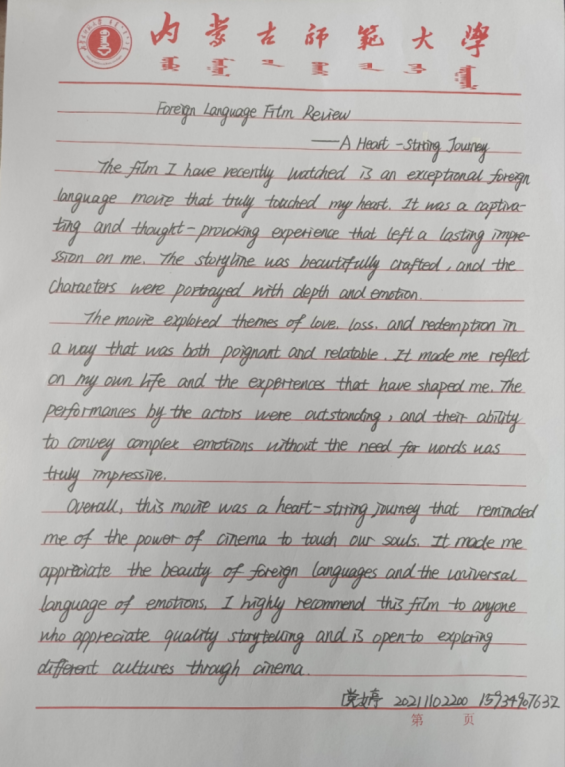 内蒙古师范大学
Foreign Language Film Review
——A Heart-string Journey
The film I have recently watched is an exceptional foreign
language movie that truly touched my heart. It was a captiva-
ting and thought-provoking experience that left a lasting impre-
ssion on me. The storyline was beautifully crafted, and the
characters were portrayed with depth and emotion.
The movie explored themes of love, loss, and redemption in
a way that was both poignant and relatable. It made me reflect
on my own life and the experiences that have shaped me. The
performances by the actors were outstanding, and their ability
to convey complex emotions without the need for words was
truly impressive.
Overall, this movie was a heart-string journey that reminded
me of the power of cinema to touch our souls. It made me
appreciate the beauty of foreign languages and the universal
language of emotions. I highly recommend this film to anyone
who appreciate quality storytelling and is open to exploring
different cultures through cinema.
党婷 20211102200 15934907632
第 页